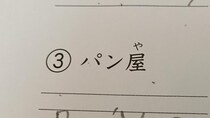 ③ パン屋